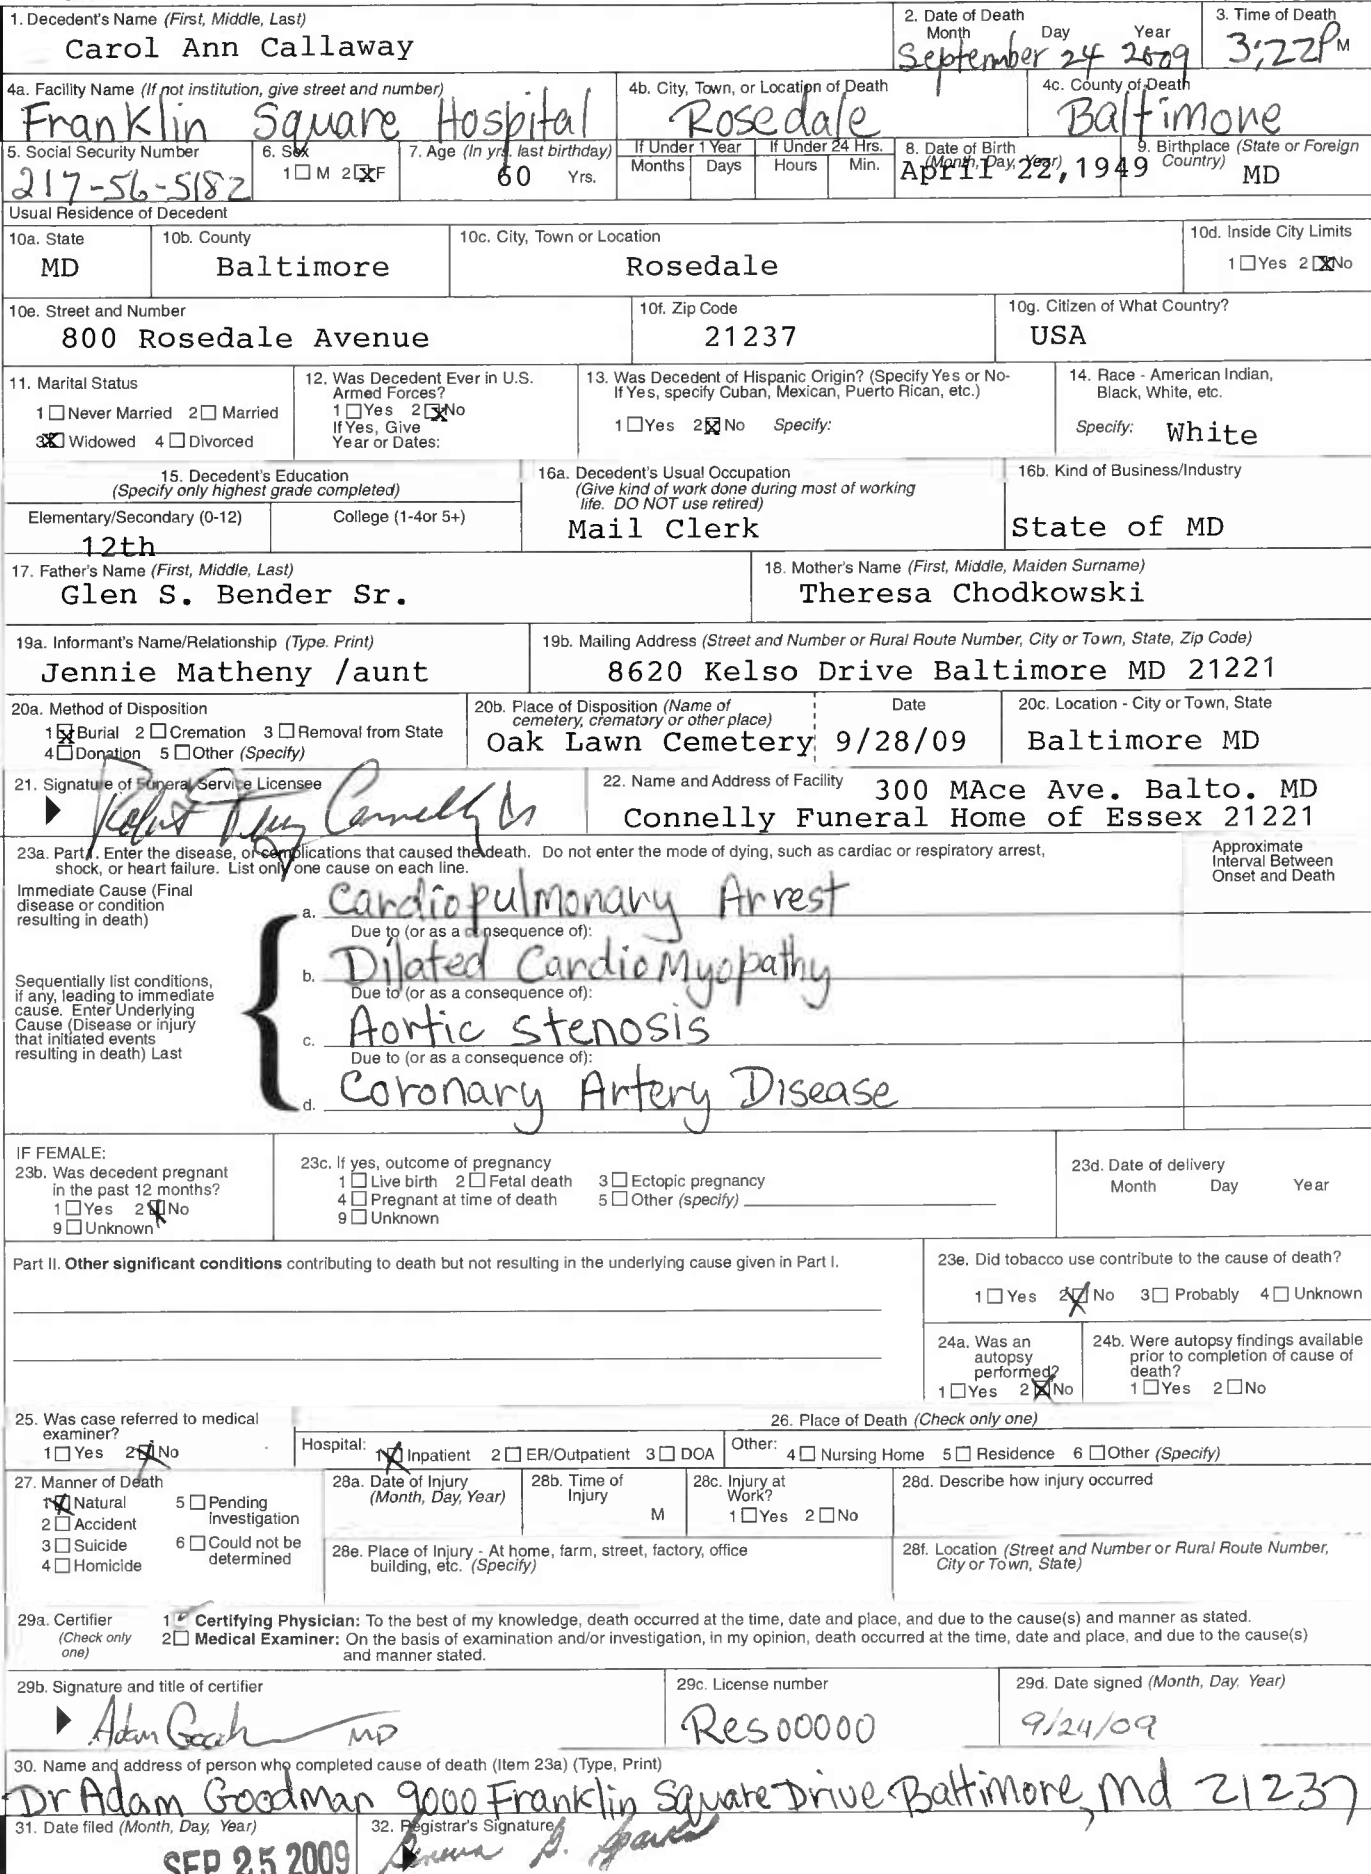 1. Decedent's Name (First, Middle, Last)
Carol Ann Callaway
2. Date of Death
Month Day Year
September 24 2009
3. Time of Death
3:22P M
4a. Facility Name (If not institution, give street and number)
Franklin Square Hospital
4b. City, Town, or Location of Death
Rosedale
4c. County of Death
Baltimore
5. Social Security Number
217-56-5182
6. Sex
1 □ M 2 ☒ F
7. Age (In yrs. last birthday)
60 Yrs.
If Under 1 Year
Months Days
If Under 24 Hrs.
Hours Min.
8. Date of Birth
(Month, Day, Year)
April 22,1949
9. Birthplace (State or Foreign
Country)
MD
Usual Residence of Decedent
10a. State
MD
10b. County
Baltimore
10c. City, Town or Location
Rosedale
10d. Inside City Limits
1 □ Yes 2 ☒ No
10e. Street and Number
800 Rosedale Avenue
10f. Zip Code
21237
10g. Citizen of What Country?
USA
11. Marital Status
1 □ Never Married 2 □ Married
3 ☒ Widowed 4 □ Divorced
12. Was Decedent Ever in U.S.
Armed Forces?
1 □ Yes 2 ☒ No
If Yes, Give
Year or Dates:
13. Was Decedent of Hispanic Origin? (Specify Yes or No-
If Yes, specify Cuban, Mexican, Puerto Rican, etc.)
1 □ Yes 2 ☒ No Specify:
14. Race - American Indian,
Black, White, etc.
Specify: White
15. Decedent's Education
(Specify only highest grade completed)
Elementary/Secondary (0-12)
12th
College (1-4or 5+)
16a. Decedent's Usual Occupation
(Give kind of work done during most of working
life. DO NOT use retired)
Mail Clerk
16b. Kind of Business/Industry
State of MD
17. Father's Name (First, Middle, Last)
Glen S. Bender Sr.
18. Mother's Name (First, Middle, Maiden Surname)
Theresa Chodkowski
19a. Informant's Name/Relationship (Type. Print)
Jennie Matheny /aunt
19b. Mailing Address (Street and Number or Rural Route Number, City or Town, State, Zip Code)
8620 Kelso Drive Baltimore MD 21221
20a. Method of Disposition
1 ☒ Burial 2 □ Cremation 3 □ Removal from State
4 □ Donation 5 □ Other (Specify)
20b. Place of Disposition (Name of
cemetery, crematory or other place)
Oak Lawn Cemetery
Date
9/28/09
20c. Location - City or Town, State
Baltimore MD
21. Signature of Funeral Service Licensee
Connelly
22. Name and Address of Facility 300 MAce Ave. Balto. MD
Connelly Funeral Home of Essex 21221
23a. Part I. Enter the disease, or complications that caused the death. Do not enter the mode of dying, such as cardiac or respiratory arrest,
shock, or heart failure. List only one cause on each line.
Approximate
Interval Between
Onset and Death
Immediate Cause (Final
disease or condition
resulting in death)
a. Cardiopulmonary Arrest
Due to (or as a consequence of):
b. Dilated CardioMyopathy
Due to (or as a consequence of):
Sequentially list conditions,
if any, leading to immediate
cause. Enter Underlying
Cause (Disease or injury
that initiated events
resulting in death) Last
c. Aortic Stenosis
Due to (or as a consequence of):
d. Coronary Artery Disease
IF FEMALE:
23b. Was decedent pregnant
in the past 12 months?
1 □ Yes 2 ☒ No
9 □ Unknown
23c. If yes, outcome of pregnancy
1 □ Live birth 2 □ Fetal death 3 □ Ectopic pregnancy
4 □ Pregnant at time of death 5 □ Other (specify)
9 □ Unknown
23d. Date of delivery
Month Day Year
Part II. Other significant conditions contributing to death but not resulting in the underlying cause given in Part I.
23e. Did tobacco use contribute to the cause of death?
1 □ Yes 2 ☒ No 3 □ Probably 4 □ Unknown
24a. Was an
autopsy
performed?
1 □ Yes 2 ☒ No
24b. Were autopsy findings available
prior to completion of cause of
death?
1 □ Yes 2 □ No
25. Was case referred to medical
examiner?
1 □ Yes 2 ☒ No
26. Place of Death (Check only one)
Hospital: 1 ☒ Inpatient 2 □ ER/Outpatient 3 □ DOA
Other: 4 □ Nursing Home 5 □ Residence 6 □ Other (Specify)
27. Manner of Death
1 ☒ Natural 5 □ Pending
investigation
2 □ Accident
3 □ Suicide 6 □ Could not be
determined
4 □ Homicide
28a. Date of Injury
(Month, Day, Year)
28b. Time of
Injury
M
28c. Injury at
Work?
1 □ Yes 2 □ No
28d. Describe how injury occurred
28e. Place of Injury - At home, farm, street, factory, office
building, etc. (Specify)
28f. Location (Street and Number or Rural Route Number,
City or Town, State)
29a. Certifier
(Check only
one)
1 ☑ Certifying Physician: To the best of my knowledge, death occurred at the time, date and place, and due to the cause(s) and manner as stated.
2 □ Medical Examiner: On the basis of examination and/or investigation, in my opinion, death occurred at the time, date and place, and due to the cause(s)
and manner stated.
29b. Signature and title of certifier
Adam MD
29c. License number
Res00000
29d. Date signed (Month, Day, Year)
9/24/09
30. Name and address of person who completed cause of death (Item 23a) (Type, Print)
Dr Adam Goodman 9000 Franklin Square Drive Baltimore, Md 21237
31. Date filed (Month, Day, Year)
SEP 25 2009
32. Registrar's Signature